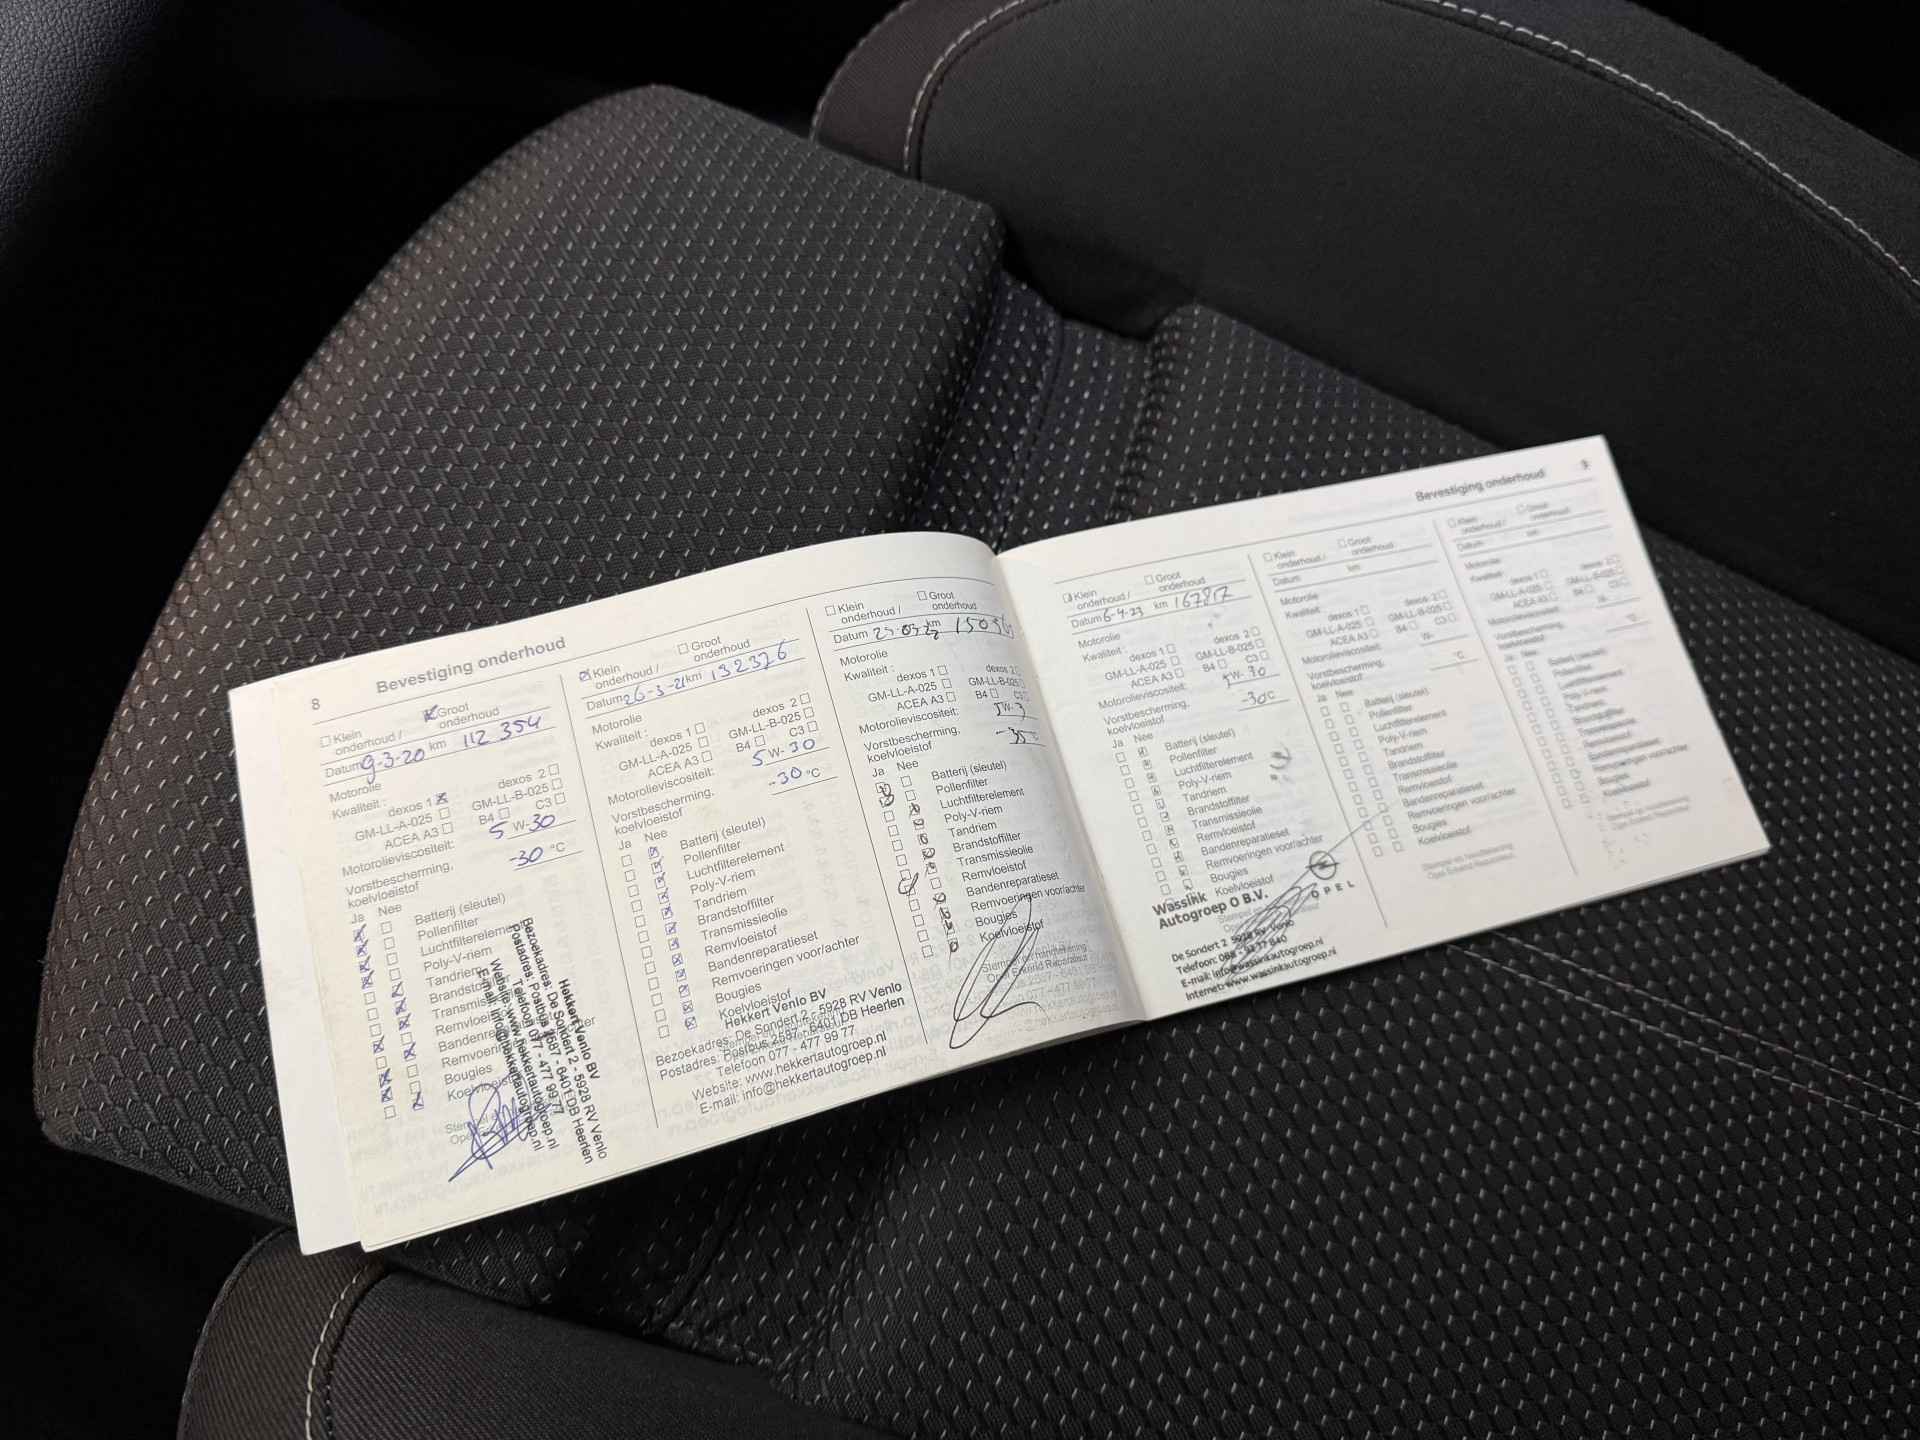 8
Bevestiging onderhoud
Klein onderhoud / Groot onderhoud
Datum 9-3-20 km 112 354
Motorolie
Kwaliteit : dexos 1 dexos 2
GM-LL-A-025 GM-LL-B-025
ACEA A3 B4 C3
Motorolieviscositeit: 5 W- 30
Vorstbescherming, -30 °C
koelvloeistof
Ja Nee
Batterij (sleutel)
Pollenfilter
Luchtfilterelement
Poly-V-riem
Tandriem
Bougies
Hekkert Venlo BV
Bezoekadres: De Sondert 2 - 5928 RV Venlo
Postadres: Postbus 2587 - 6401 DB Heerlen
Telefoon 077 - 477 99 77
Website: www.hekkertautogroep.nl
E-mail: info@hekkertautogroep.nl
Klein onderhoud / Groot onderhoud
Datum 26-3-21 km 132326
Motorolie
Kwaliteit : dexos 1 dexos 2
GM-LL-A-025 GM-LL-B-025
ACEA A3 B4 C3
Motorolieviscositeit: 5 W- 30
Vorstbescherming, -30 °C
koelvloeistof
Ja Nee
Batterij (sleutel)
Pollenfilter
Luchtfilterelement
Poly-V-riem
Tandriem
Brandstoffilter
Transmissieolie
Remvloeistof
Bandenreparatieset
Remvoeringen voor/achter
Bougies
Koelvloeistof
Hekkert Venlo BV
Bezoekadres: De Sondert 2 - 5928 RV Venlo
Postadres: Postbus 2587 - 6401 DB Heerlen
Telefoon 077 - 477 99 77
Website: www.hekkertautogroep.nl
E-mail: info@hekkertautogroep.nl
Klein onderhoud / Groot onderhoud
Datum km
Motorolie
Kwaliteit : dexos 1 dexos 2
GM-LL-A-025 GM-LL-B-025
ACEA A3 B4 C3
Motorolieviscositeit: 5W-3
Vorstbescherming, -35 °C
koelvloeistof
Ja Nee
Batterij (sleutel)
Pollenfilter
Luchtfilterelement
Poly-V-riem
Tandriem
Brandstoffilter
Transmissieolie
Remvloeistof
Bandenreparatieset
Remvoeringen voor/achter
Bougies
Koelvloeistof
Stempel en handtekening
Opel Erkend Reparateur
Bevestiging onderhoud
9
Klein onderhoud / Groot onderhoud
Datum 6-4-23 km 167817
Motorolie
Kwaliteit : dexos 1 dexos 2
GM-LL-A-025 GM-LL-B-025
ACEA A3 B4 C3
Motorolieviscositeit: 5 W- 30
Vorstbescherming, -30 °C
koelvloeistof
Ja Nee
Batterij (sleutel)
Pollenfilter
Luchtfilterelement
Poly-V-riem
Tandriem
Brandstoffilter
Transmissieolie
Remvloeistof
Bandenreparatieset
Remvoeringen voor/achter
Bougies
Koelvloeistof
Wassink
Autogroep O B.V.
OPEL
De Sondert 2 5928 RV Venlo
E-mail: info@wassinkautogroep.nl
Internet: www.wassinkautogroep.nl
Klein onderhoud / Groot onderhoud
Datum km
Motorolie
Kwaliteit : dexos 1 dexos 2
GM-LL-A-025 GM-LL-B-025
ACEA A3 B4 C3
Motorolieviscositeit: W-
Vorstbescherming, °C
koelvloeistof
Ja Nee
Batterij (sleutel)
Pollenfilter
Luchtfilterelement
Poly-V-riem
Tandriem
Brandstoffilter
Transmissieolie
Remvloeistof
Bandenreparatieset
Remvoeringen voor/achter
Bougies
Koelvloeistof
Stempel en handtekening
Opel Erkend Reparateur
Klein onderhoud / Groot onderhoud
Datum km
Motorolie
Kwaliteit : dexos 1 dexos 2
GM-LL-A-025 GM-LL-B-025
ACEA A3 B4 C3
Motorolieviscositeit: W-
Vorstbescherming, °C
koelvloeistof
Ja Nee
Batterij (sleutel)
Pollenfilter
Luchtfilterelement
Poly-V-riem
Tandriem
Brandstoffilter
Transmissieolie
Remvloeistof
Bandenreparatieset
Remvoeringen voor/achter
Bougies
Koelvloeistof